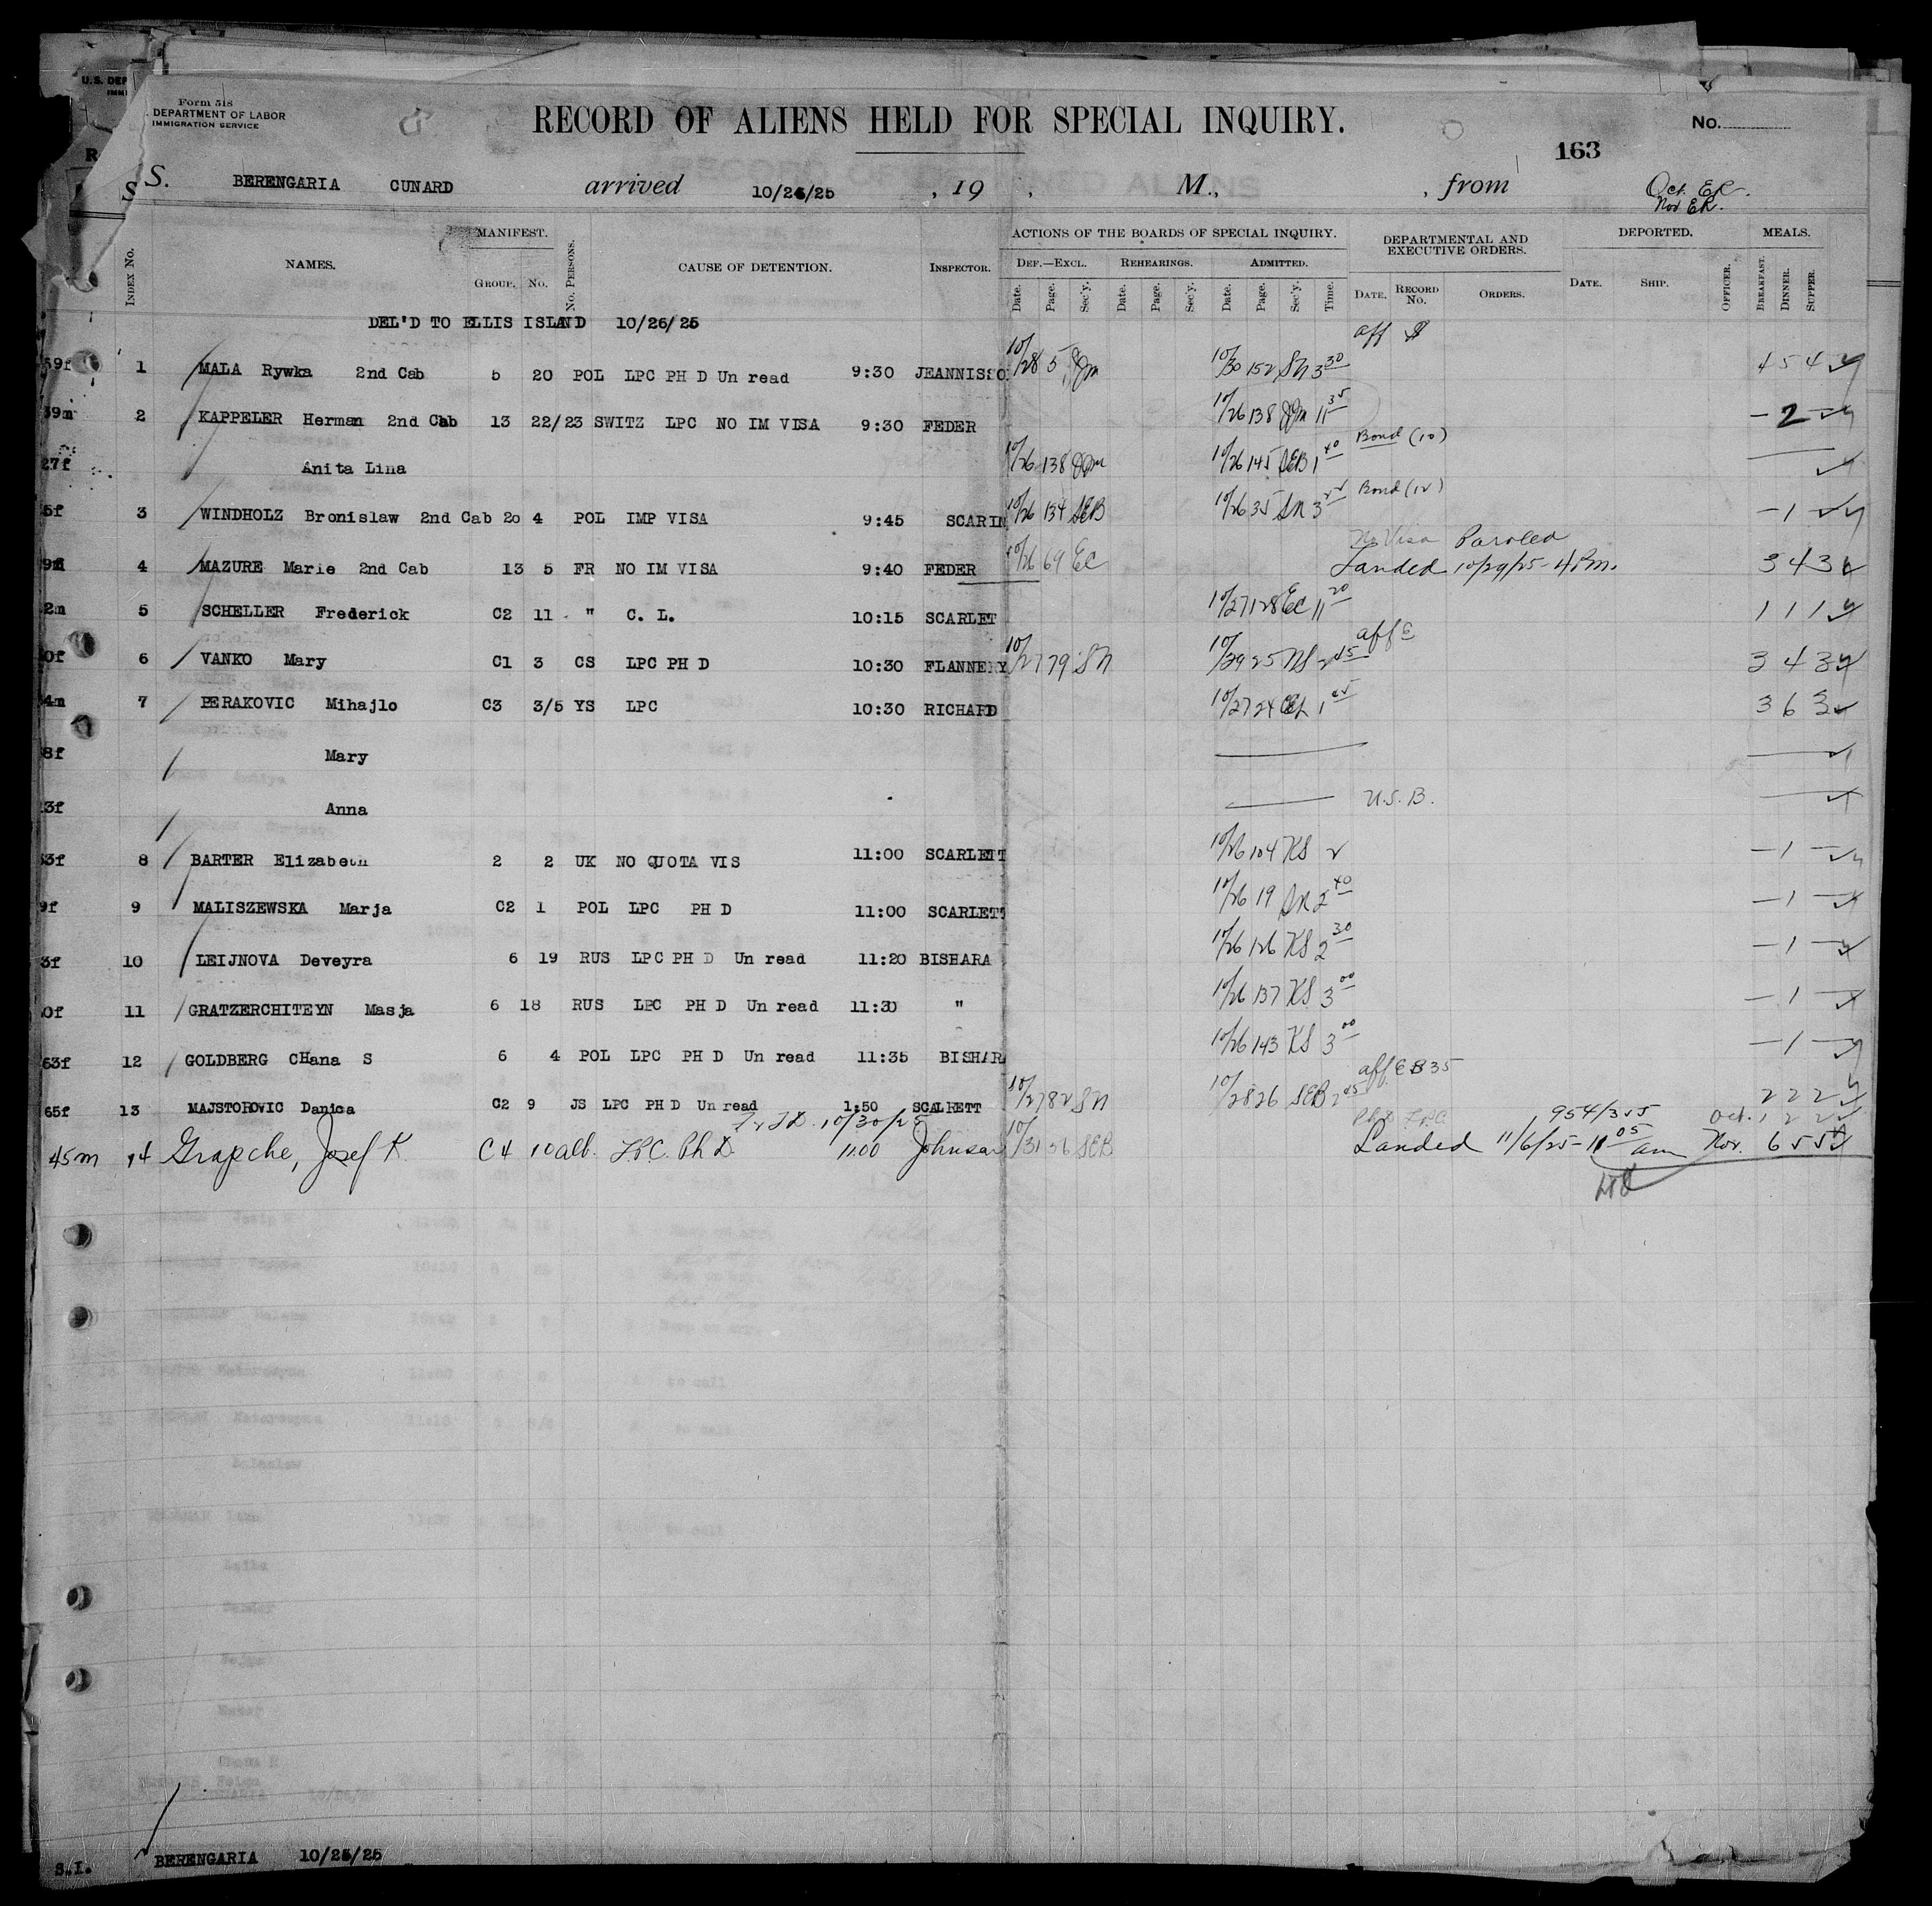 U.S. DEP
IMMI
Form 518
. DEPARTMENT OF LABOR
IMMIGRATION SERVICE
RECORD OF ALIENS HELD FOR SPECIAL INQUIRY.
No.
163
S. BERENGARIA CUNARD arrived 10/25/25, 19 , M., , from
Oct. ER.
Nov ER.
INDEX No. NAMES. MANIFEST. GROUP. No. No. PERSONS. CAUSE OF DETENTION. INSPECTOR.
ACTIONS OF THE BOARDS OF SPECIAL INQUIRY. DEPARTMENTAL AND EXECUTIVE ORDERS. DEPORTED. MEALS.
DEF.—EXCL. REHEARINGS. ADMITTED.
Date. Page. Sec'y. Date. Page. Sec'y. Date. Page. Sec'y. Time. DATE. RECORD No. ORDERS. DATE. SHIP. OFFICER. BREAKFAST. DINNER. SUPPER.
DEL'D TO ELLIS ISLAND 10/26/25
59f 1 MALA Rywka 2nd Cab 5 20 POL LPC PH D Un read 9:30 JEANNISSO 10/28 5 10/30 152 SN 3 30 aff 4 5 4
39m 2 KAPPELER Herman 2nd Cab 13 22/23 SWITZ LPC NO IM VISA 9:30 FEDER 10/26 138 11 35 - 2 -
27f Anita Lina 10/26 138 10/26 145 SEB 1 40 Bond (10)
5f 3 WINDHOLZ Bronislaw 2nd Cab 20 4 POL IMP VISA 9:45 SCARIN 10/26 134 SEB 10/26 35 SN 3 Bond - 1 -
No Visa Paroled
4 MAZURE Marie 2nd Cab 13 5 FR NO IM VISA 9:40 FEDER 10/26 69 EC Landed 10/29/25 - 4 P.m. 3 4 3
2m 5 SCHELLER Frederick C2 11 " C. L. 10:15 SCARLET 10/27 128 EC 11 20 1 1 1
0f 6 VANKO Mary C1 3 CS LPC PH D 10:30 FLANNERY 10/27 79 SN 10/29 25 NS 2 45 aff 3 4 3
4m 7 PERAKOVIC Mihajlo C3 3/5 YS LPC 10:30 RICHARD 10/27 24 1 45 3 6 3
8f Mary
3f Anna U.S.B.
3f 8 BARTER Elizabeth 2 2 UK NO QUOTA VIS 11:00 SCARLETT 10/26 104 KS 2 - 1 -
9f 9 MALISZEWSKA Marja C2 1 POL LPC PH D 11:00 SCARLETT 10/26 19 SN 2 40 - 1 -
3f 10 LEIJNOVA Deveyra 6 19 RUS LPC PH D Un read 11:20 BISHARA 10/26 126 KS 2 30 - 1 -
0f 11 GRATZERCHITEYN Masja 6 18 RUS LPC PH D Un read 11:30 " 10/26 137 KS 3 00 - 1 -
63f 12 GOLDBERG CHana S 6 4 POL LPC PH D Un read 11:35 BISHAR 10/26 143 KS 3 00 - 1 -
65f 13 MAJSTOROVIC Danica C2 9 JS LPC PH D Un read 1:50 SCALRETT 10/27 82 SN 10/28 26 SEB 2 45 aff 2 2 2
10/30/25 Ph.D. LPC 954/355 Oct. 1 2 2
45m 14 Grapche, Josef K. C4 10 alb. LPC. Ph D. 11.00 Johnson 10/31 36 SEB Landed 11/6/25 - 11 05 am Nov. 6 5 5
S.I. BERENGARIA 10/25/25